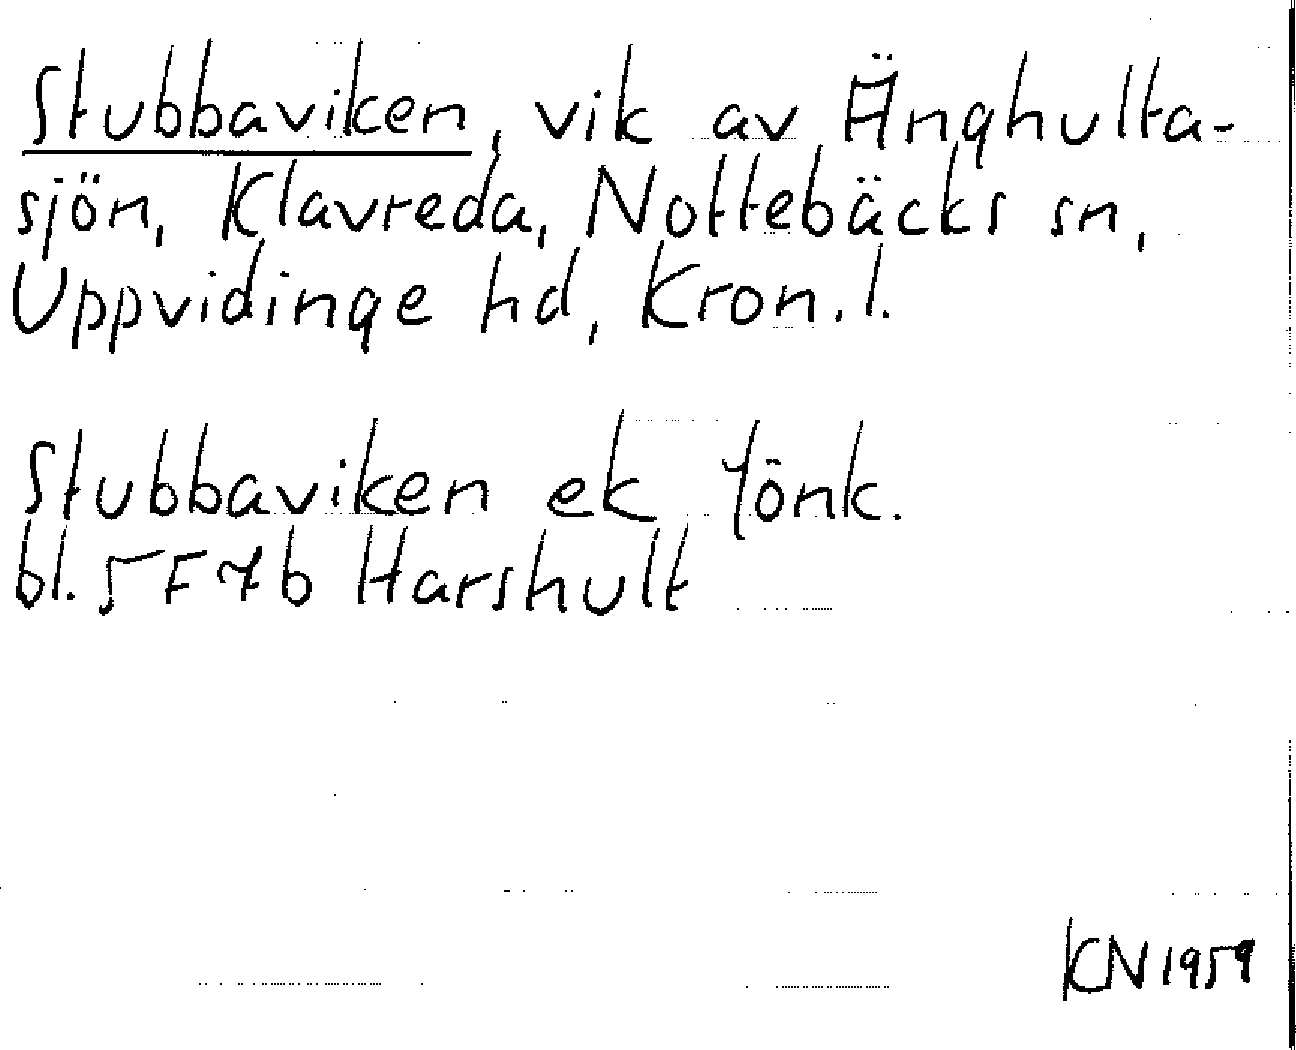 Stubbaviken, vik av Änghulta-
sjön, Klavreda, Nottebäcks sn,
Uppvidinge hd, Kron.l.
Stubbaviken ek Jönk.
bl. 5F7b Harshult
KN 1959